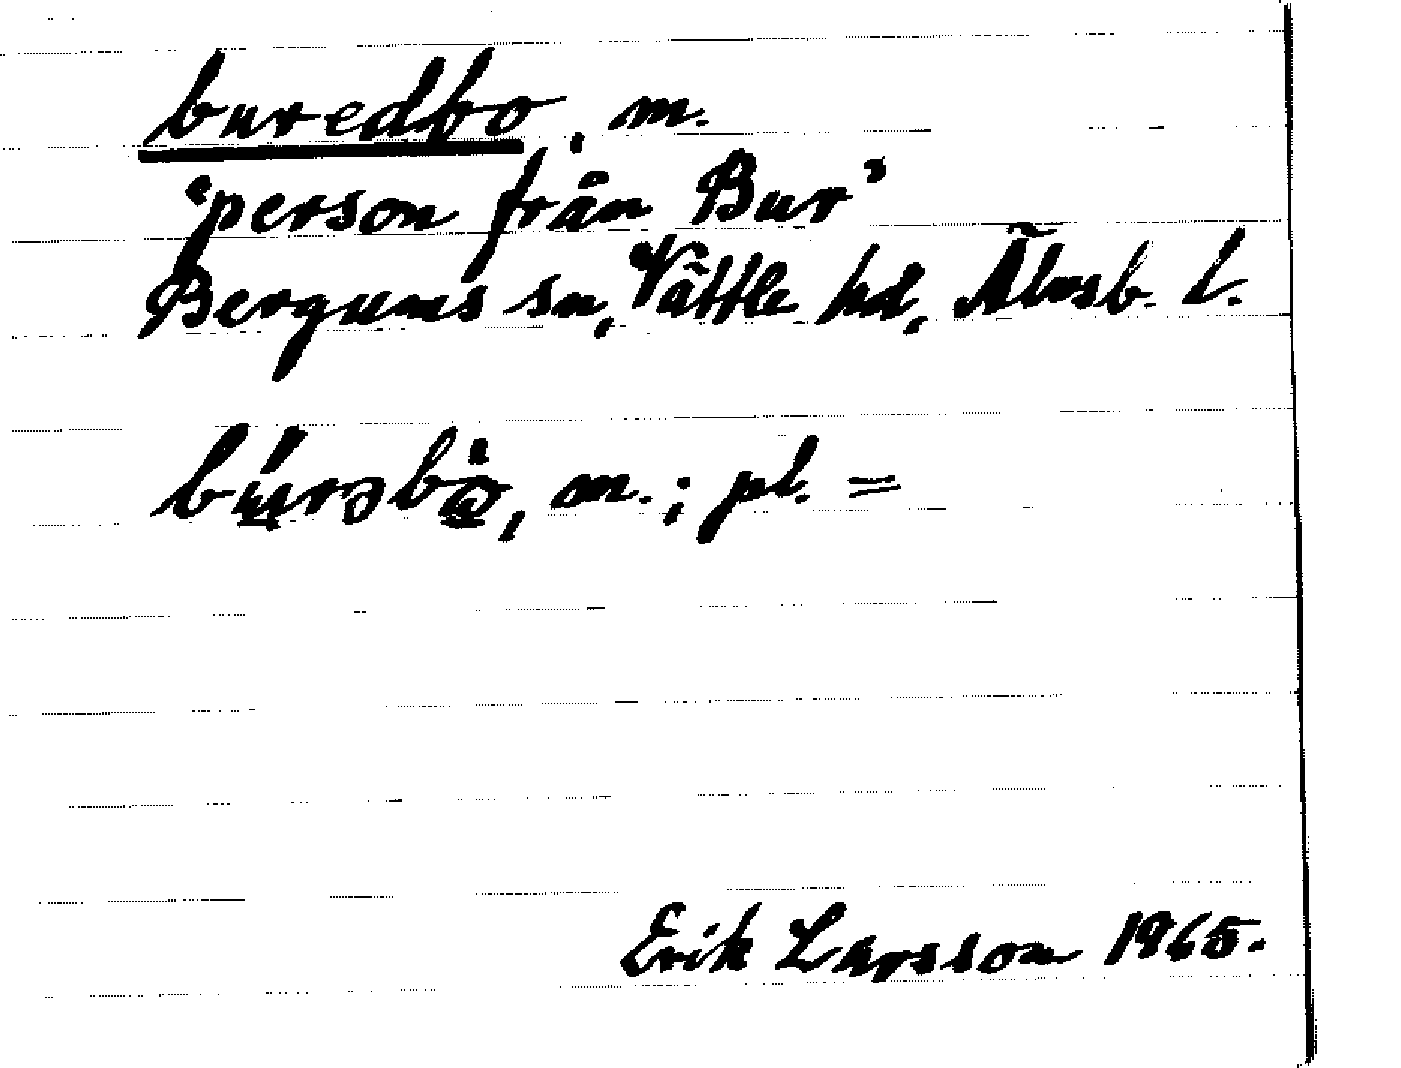 buredbo, m.
'person från Bur'
Bergums sn, Vättle hd, Älvsb. l.
bú̲rəbo̲̊, m.; pl. =
Erik Larsson 1965.